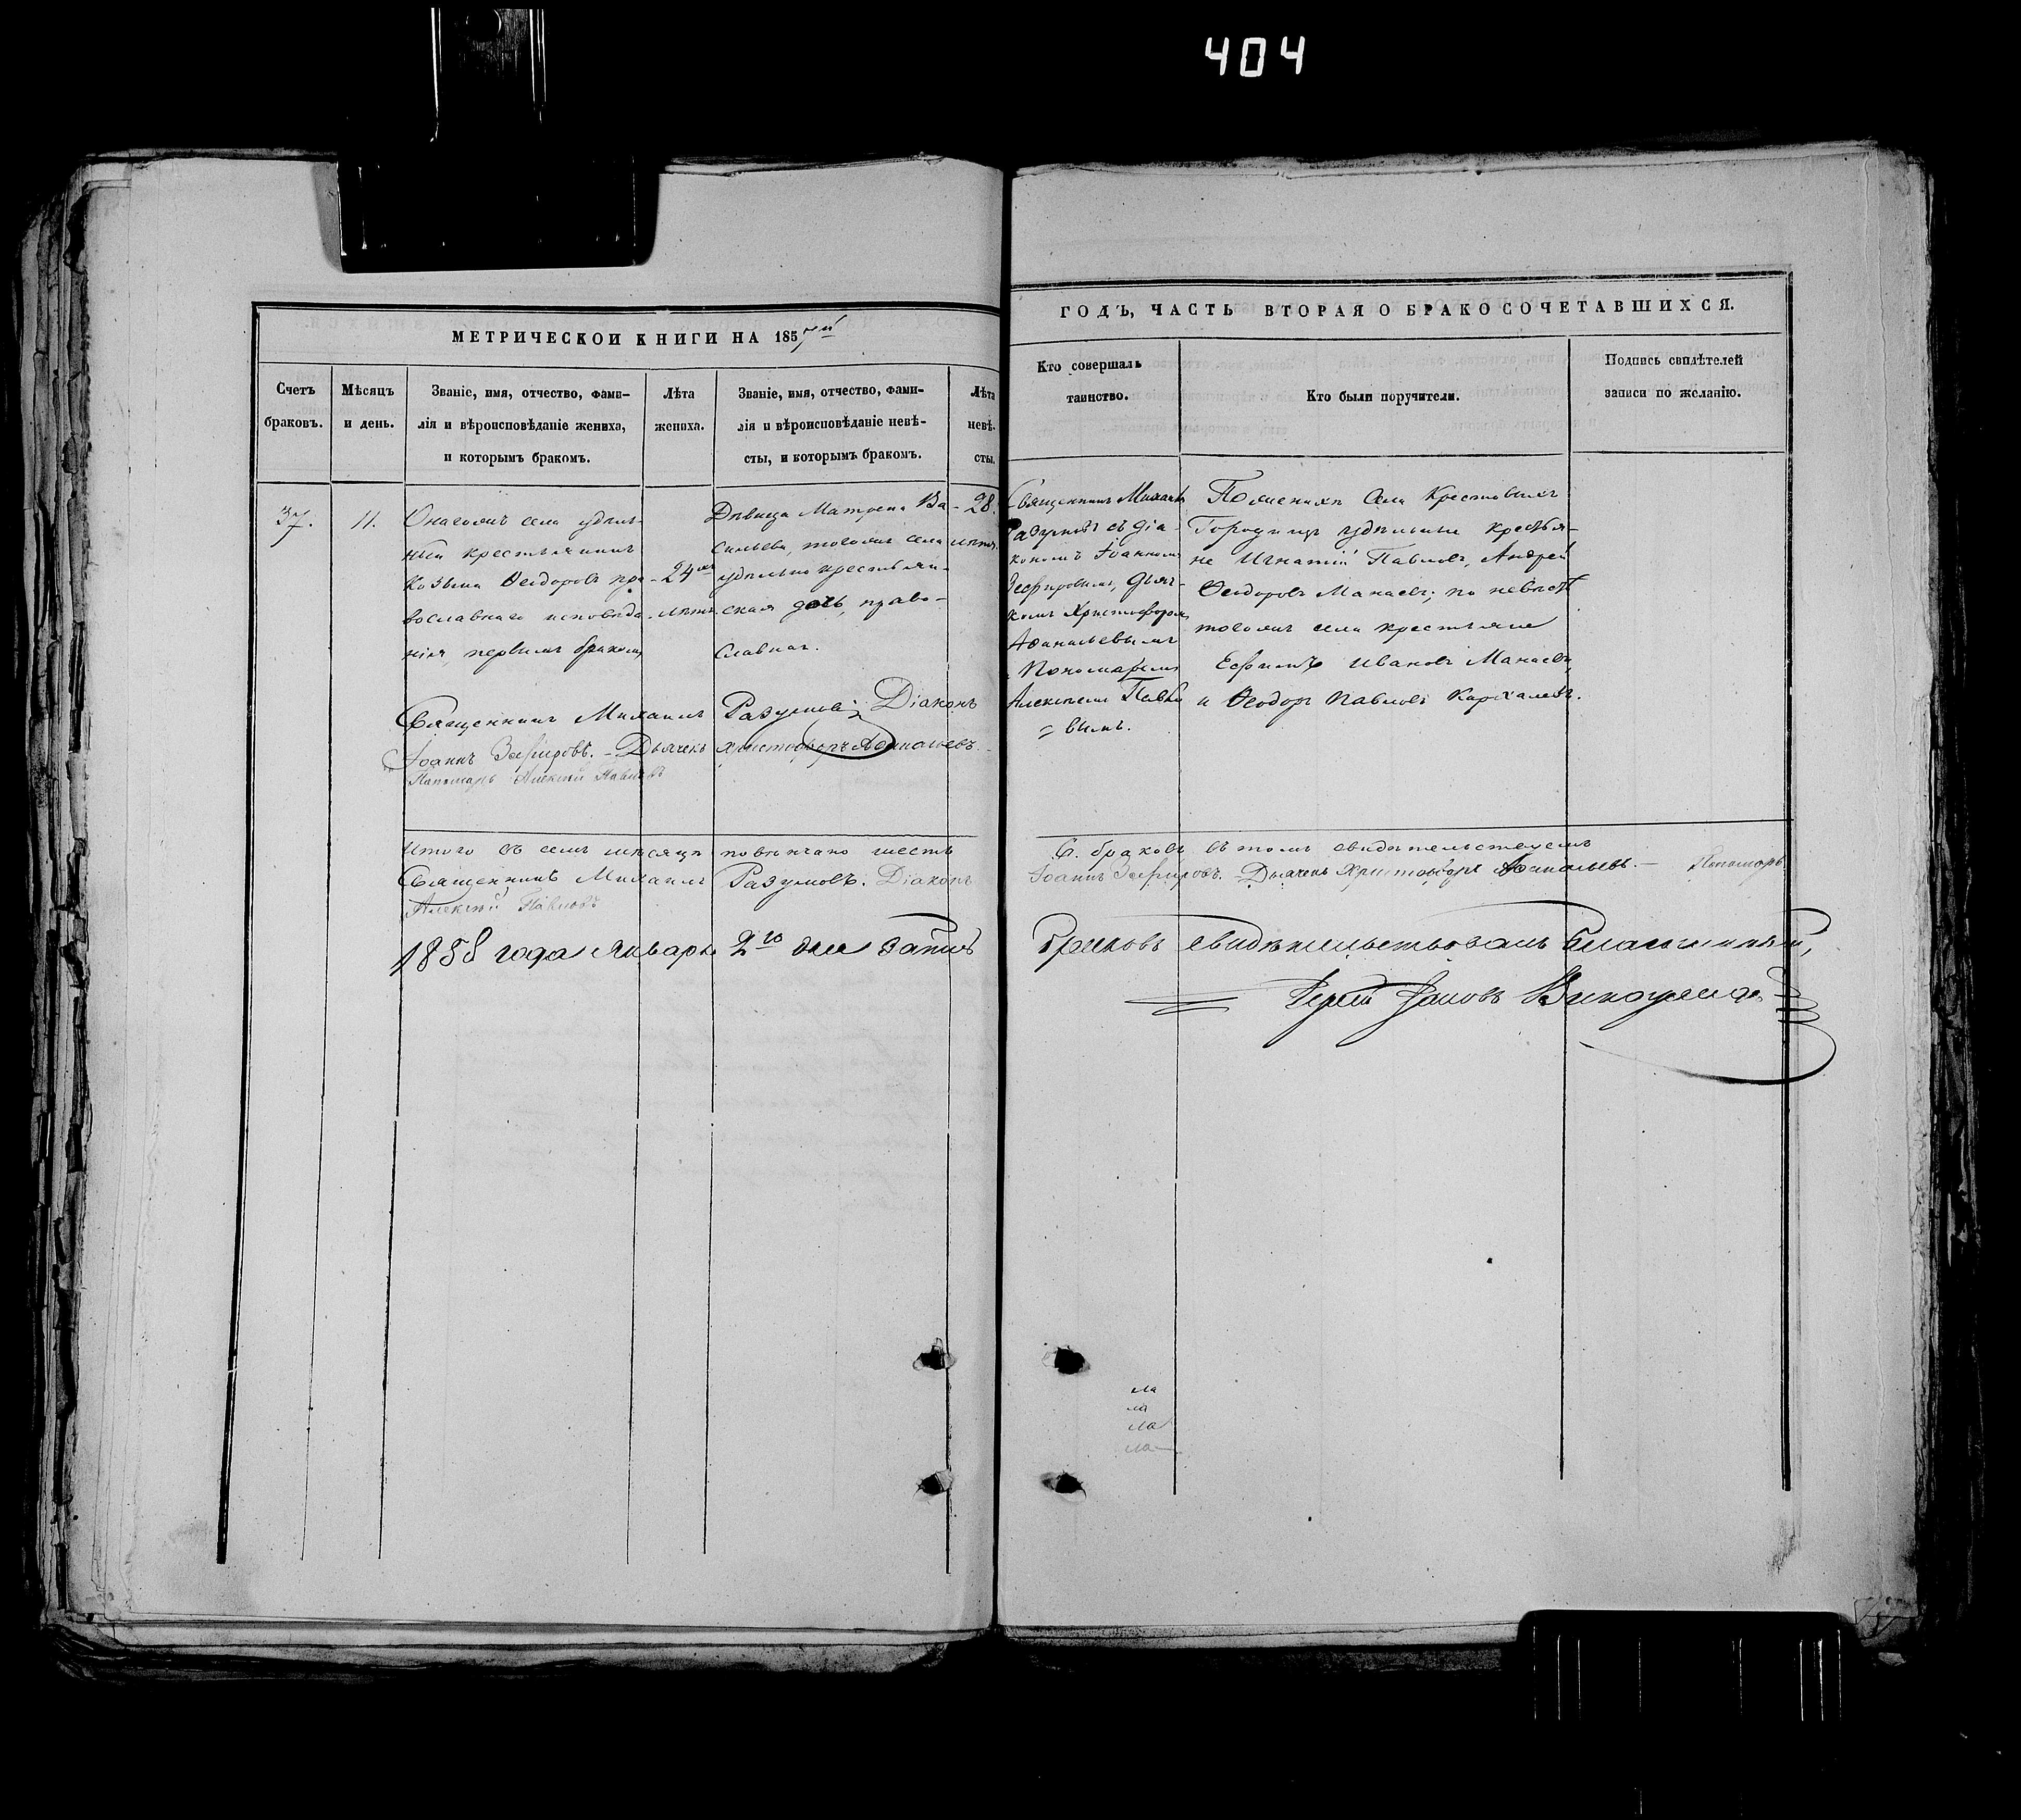 404
МЕТРИЧЕСКОИ КНИГИ НА 1857й
ГОДЪ, ЧАСТЬ ВТОРАЯ О БРАКОСОЧЕТАВШИХСЯ.
Счетъ
браковъ.
Мѣсяцъ
и день.
Званіе, имя, отчество, фами-
лія и вѣроисповѣданіе жениха,
и которымъ бракомъ.
Лѣта
жениха.
Званіе, имя, отчество, фами-
лія и вѣроисповѣданіе невѣ-
сты, и которымъ бракомъ.
Лѣта
невѣ-
сты.
Кто совершалъ
таинство.
Кто были поручители.
Подпись свидѣтелей
записи по желанію.
37.
11.
села удѣль-
ный крестьянинъ
Козьма Ѳеодоровъ пра-
вославнаго исповѣда-
нія, первымъ бракомъ
24
лѣтъ.
Дѣвица Матрена Ва-
сильева, тогожъ села
удѣльно крестьян-
ская дочь, право-
славная.
28.
лѣтъ.
Священникъ Михаилъ
Разумовъ съ діа-
кономъ Іоанномъ
Зефировымъ, дьяч-
комъ Христофоромъ
Аѳанасьевымъ
Пономаремъ
Алексѣемъ Павло
= вымъ.
По женихѣ Села Крестовыхъ
Городищъ удѣльные крестья-
не Игнатій Павловъ, Андрей
Ѳеодоровъ Манаевъ; по невѣстѣ
тогожъ села крестьяне
Ефимъ Ивановъ Манаевъ,
и Ѳеодоръ Павловъ
Священникъ Михаилъ Разумовъ Діаконъ
Іоаннъ Зефировъ. – Дьячекъ Христофоръ Аѳанасьевъ.
Пономарь Алексѣй Павловъ
Итого въ семъ мѣсяцѣ повѣнчано шесть
6. браковъ въ томъ свидѣтельствуемъ
Священникъ Михаилъ Разумовъ. Діаконъ
Іоаннъ Зефировъ. – Дьячекъ Христофоръ Аѳанасьевъ. – Пономарь
Алексѣй Павловъ
1858 года Января 2го дня запись
браковъ свидѣтельствовалъ Благочинный,
Іерей Іаковъ
ла
ла
ла
ла